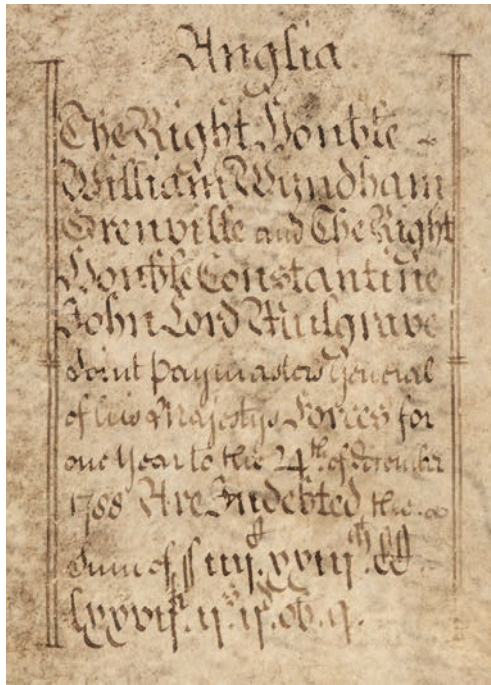 Anglia.
The Right Honble ~
William Wyndham
Grenville and The Right
Honble Constantine
John Lord Mulgrave
Joint Paymasters General
of his Majestys Forces for
one Year to the 24th of December
1788 Are Indebted the
Sum of
ob. q.